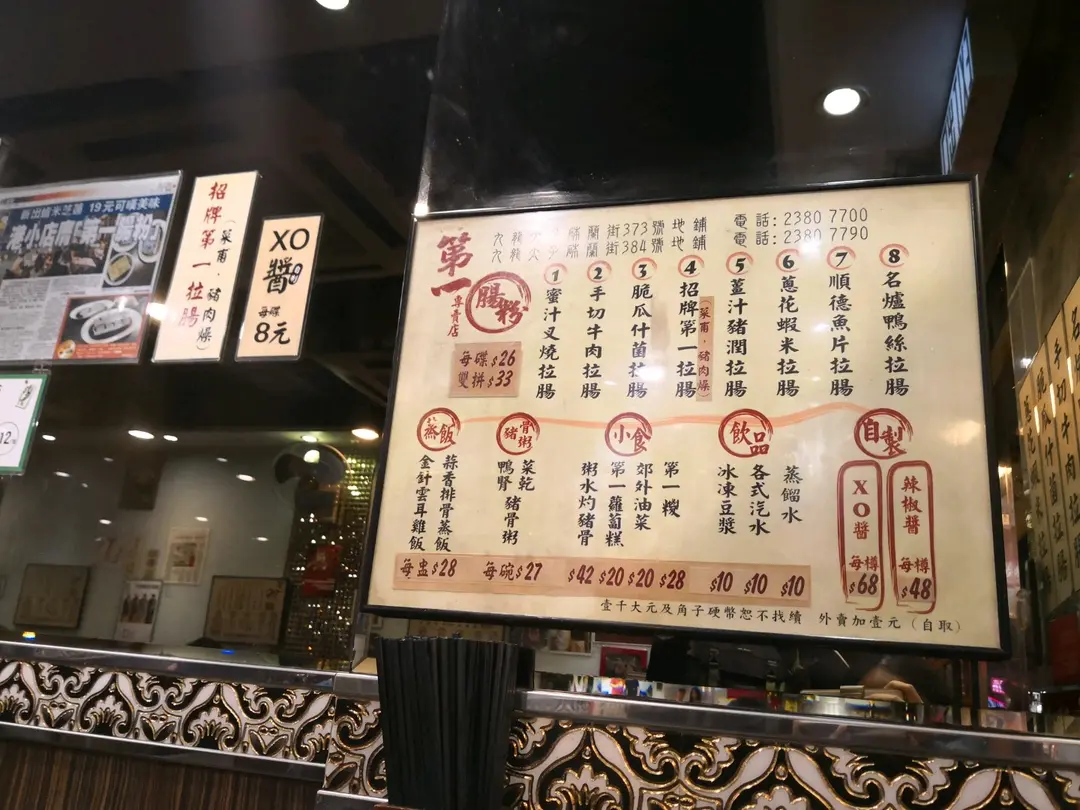 新出爐米芝蓮 19元可嘆美味
招牌第一拉腸
(菜甫，豬肉燥)
XO醬
每碟
8元
12
第一
腸粉
專賣店
每碟$26
雙拼$33
蘭街373號地鋪
蘭街384號地鋪
電話:2380 7700
電話:2380 7790
1 蜜汁叉燒拉腸
2 手切牛肉拉腸
3 脆瓜什菌拉腸
4 招牌第一拉腸
(菜甫，豬肉燥)
5 薑汁豬潤拉腸
6 蔥花蝦米拉腸
7 順德魚片拉腸
8 名爐鴨絲拉腸
蒸飯
金針雲耳雞飯
蒜香排骨蒸飯
每盅$28
豬骨粥
鴨腎
菜乾
豬骨粥
每碗$27
小食
粥水灼豬骨
第一蘿蔔糕
郊外油菜
第一糉
$42 $20 $20 $28
飲品
冰凍豆漿
各式汽水
蒸餾水
$10 $10 $10
自製
XO醬
每樽
$68
辣椒醬
每樽
$48
壹千大元及角子硬幣恕不找續 外賣加壹元（自取）
手切牛肉拉腸